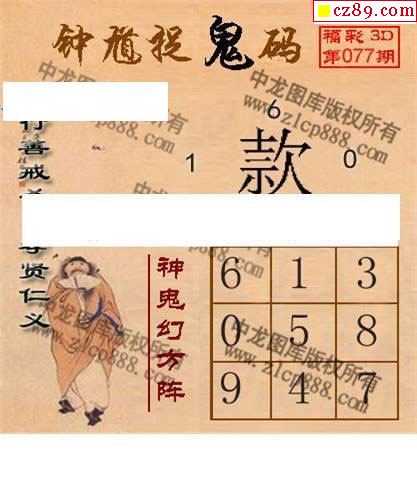 cz89.com
钟馗捉鬼码
福彩3D
第077期
6
1 款 0
行善戒
尊贤仁义
神鬼幻方阵
6 1 3
0 5 8
9 4 7
中龙图库版权所有
www.zlcp888.com
中龙图库版权所有
www.zlcp888.com
中龙图库版权所有
www.zlcp888.com